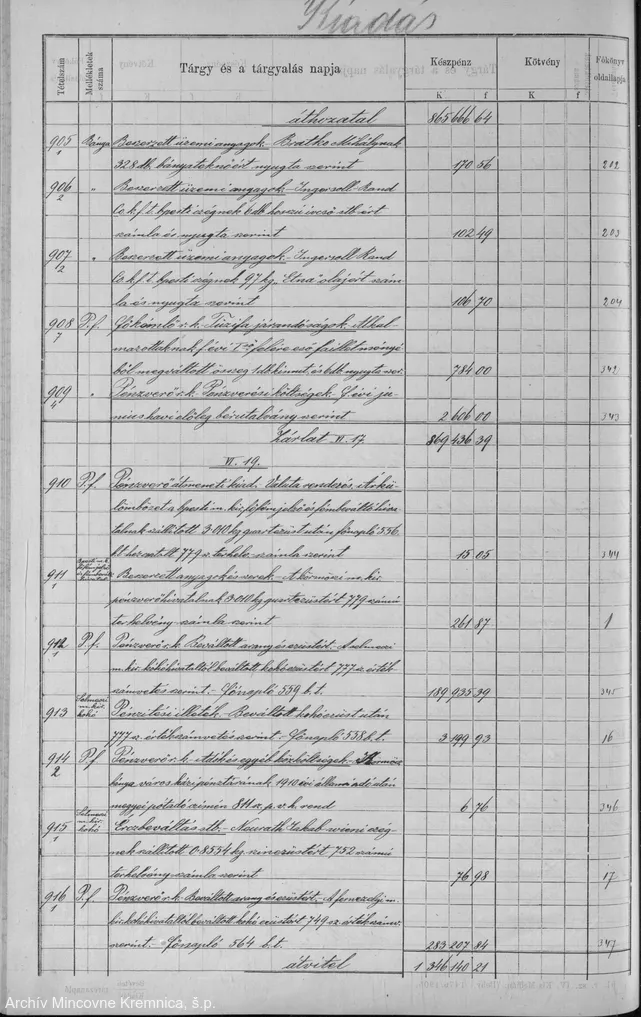 Kiadás
Tételszám
Mellékletek száma
Tárgy és a tárgyalás napja
Készpénz
Kötvény
Főkönyv oldallapja
K f K f
áthozatal 865 666 64
905 1 Bánya Beszerzett üzemi anyagok. Bratko Mihálynak
328 db. bányateknőért nyugta szerint 170 56 202
906 2 " Beszerzett üzemi anyagok. Ingersoll-Rand
Co. k. f. t. bpesti czégnek 6 db. hosszú
számla és nyugta szerint 102 49 203
907 2 " Beszerzett üzemi anyagok. Ingersoll Rand
Co. k. f. t. bpesti czégnek 97 kg. "Etna" olajért szám-
la és nyugta szerint 106 70 204
908 7 P.f. Főkamló r. k. Tűzifa járandóságok. Alkal-
mazottaknak f. évi I-ső felére eső failletménye-
ből megváltott összeg 1 db. kimut. és 6 db. nyugta szer. 784 00 342
909 4 " Pénzverő r. k. Pénzverési költségek. F. évi ju-
nius havi előleg bérutalvány szerint 2 606 00 343
Zárlat VI. 17 869 436 39
VI. 19.
910 P.f. Pénzverő átmeneti kiad. Valuta rendezés. Árkü-
lömbözet a bpesti m. kir. főfémjelző és fémbeváltó hiva-
talnak szállított 3·010 kg. quartezüst után főnapló 556
b. t. hozatott 779 sz. terhelv. számla szerint 15 05 344
911 1 Beszerzett anyagok és szerek. A körmöczi m. kir.
pénzverőhivatalnak 3·010 kg quartezüstért 779 számú
terhelvény számla szerint 261 87 1
912 1 P.f. Pénzverő r. k. Beváltott arany és ezüstért. A selmeczi
m. kir. kohóhivataltól beváltott kohó ezüstért 777 sz. érték-
számvetés szerint. - Főnapló 559 b. t. 189 935 39 345
913 Selmeczi m. kir. kohó Pénzitési illeték. Beváltott kohó ezüst után
777 sz. értékszámvetés szerint. - Főnapló 558 b. t. 3 199 93 16
914 2 P.f. Pénzverő r. k. Adók és egyéb közköltségek. Körmöcz-
bánya város házi pénztárának 1910 évi állami adó után
megyei pótadó czímén 811 sz. p. v. h. rend 6 76 346
915 1 Selmeczi m. kir. kohó Érczbeváltás stb. Naurath Jakab wieni czég-
nek szállított 0·8554 kg. színezüstért 752 számú
terhelvény számla szerint 76 98 17
916 1 P.f. Pénzverő r. k. Beváltott arany és ezüstért. A fernezelyi m.
kir. kohóhivataltól beváltott kohó ezüstért 749 sz. értékszámv.
szerint. - Főnapló 564 b. t. 283 207 84 347
átvitel 1 346 140 21
Archív Mincovne Kremnica, š.p.